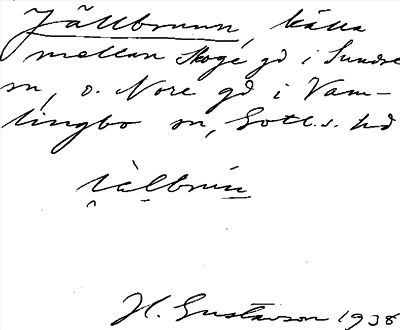 Jällbrunn, källa
mellan Skoge gd i Sundre
sn, o. Nore gd i Vam-
lingbo sn, Gotl.s. hd
H. Gustavson 1938